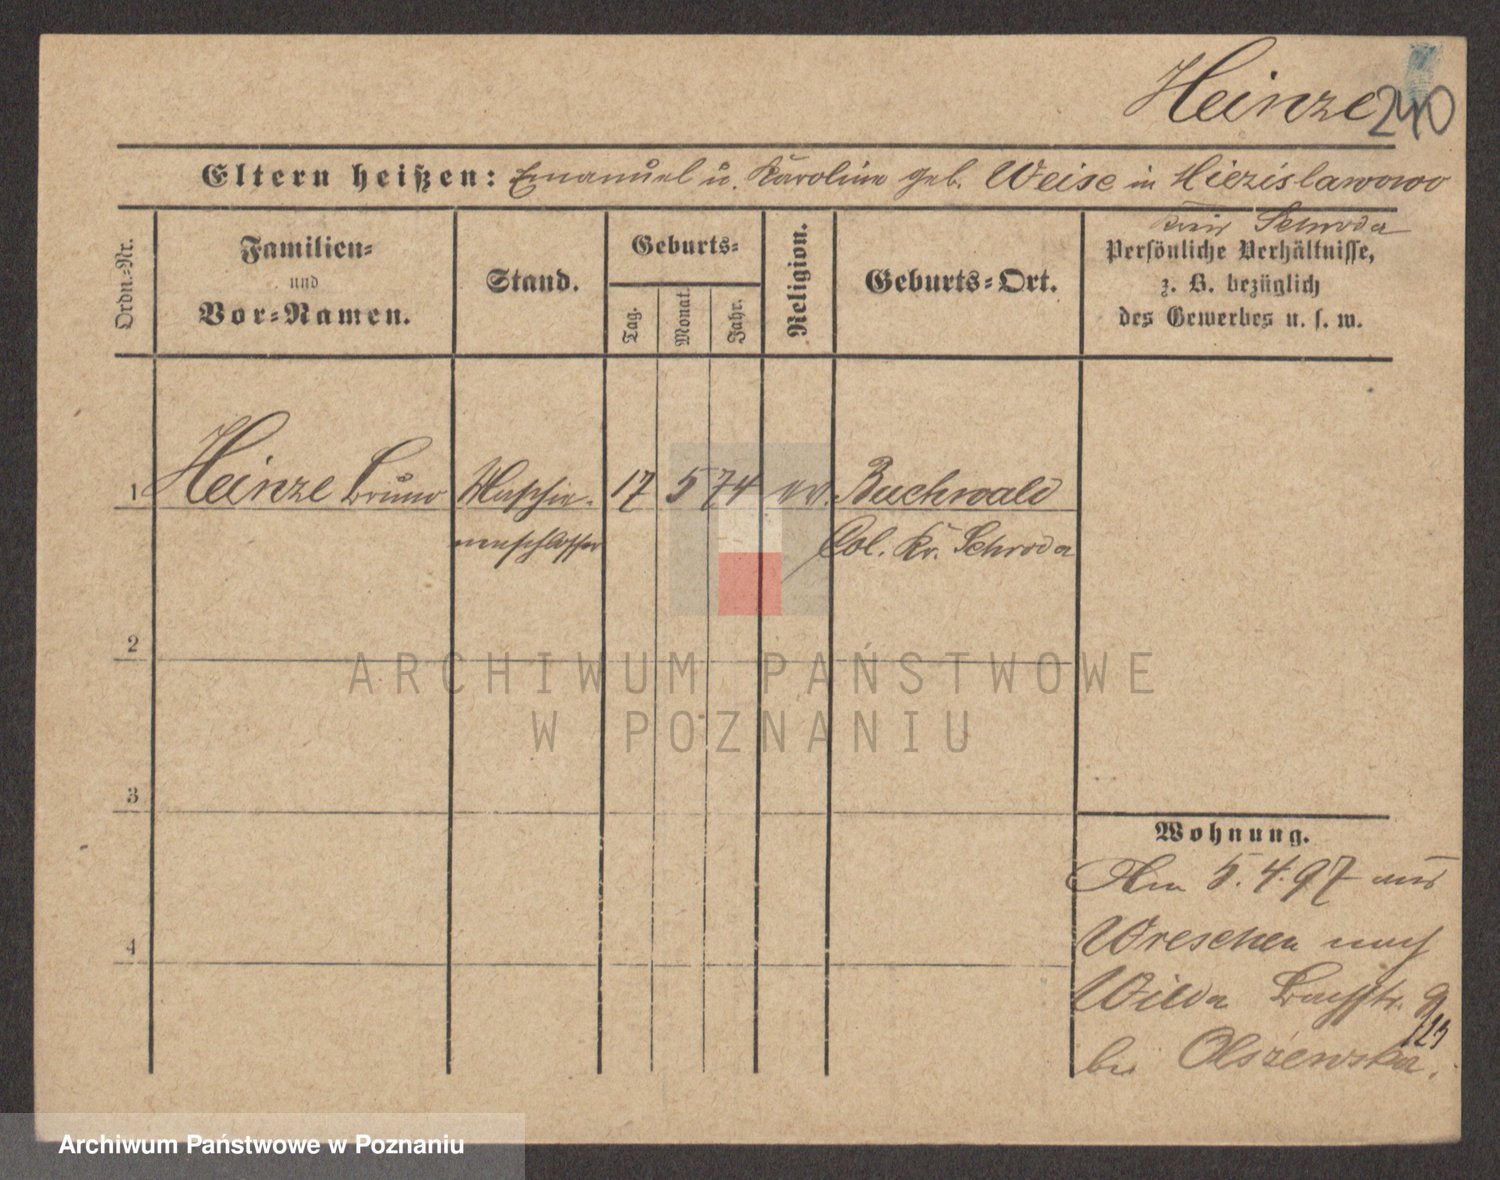 Heinze 240
Eltern heißen: Emanuel u. Karoline geb. Weise in Miezislawowo
Kreis Schroda
Ordn.-Nr.
Familien-
und
Vor-Namen.
Stand.
Geburts-
Tag.
Monat.
Jahr.
Religion.
Geburts-Ort.
Persönliche Verhältnisse,
z. B. bezüglich
des Gewerbes u. s. w.
1 Heinze Bruno Maschie- 17 5 74 ev. Buchwald
nenschlosser Col. Kr. Schroda
2
3
4
Wohnung.
Am 5.4.97 aus
Wreschen nach
Wilda Bachstr. 9
bei Olszewska.
ARCHIWUM PAŃSTWOWE
W POZNANIU
Archiwum Państwowe w Poznaniu